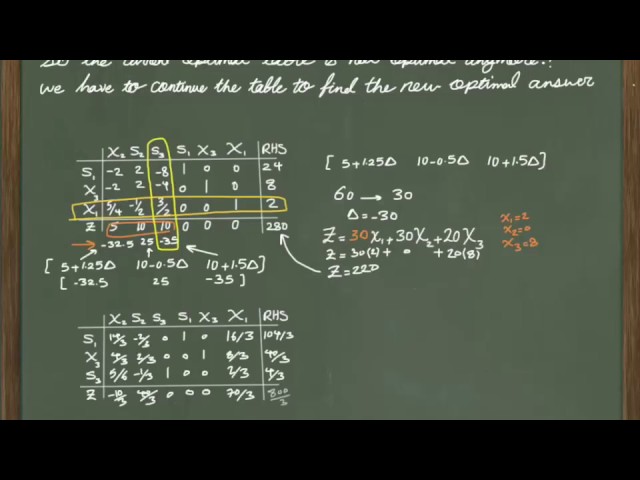 So the current optimal table is not optimal anymore!!
we have to continue the table to find the new optimal answer
X2 S2 S3 S1 X3 X1 RHS
S1 -2 2 -8 1 0 0 24
X3 -2 2 -4 0 1 0 8
X1 5/4 -1/2 3/2 0 0 1 2
Z 5 10 10 0 0 0 280
→ -32.5 25 -35
[ 5+1.25Δ 10-0.5Δ 10+1.5Δ ]
[ -32.5 25 -35 ]
[ 5+1.25Δ 10-0.5Δ 10+1.5Δ ]
60 → 30
Δ=-30
Z=30X1+30X2+20X3
Z=30(2)+ 0 +20(8)
Z=220
X1=2
X2=0
X3=8
X2 S2 S3 S1 X3 X1 RHS
S1 14/3 -2/3 0 1 0 16/3 104/3
X3 4/3 2/3 0 0 1 8/3 40/3
S3 5/6 -1/3 1 0 0 2/3 4/3
Z -10/3 40/3 0 0 0 70/3 800/3